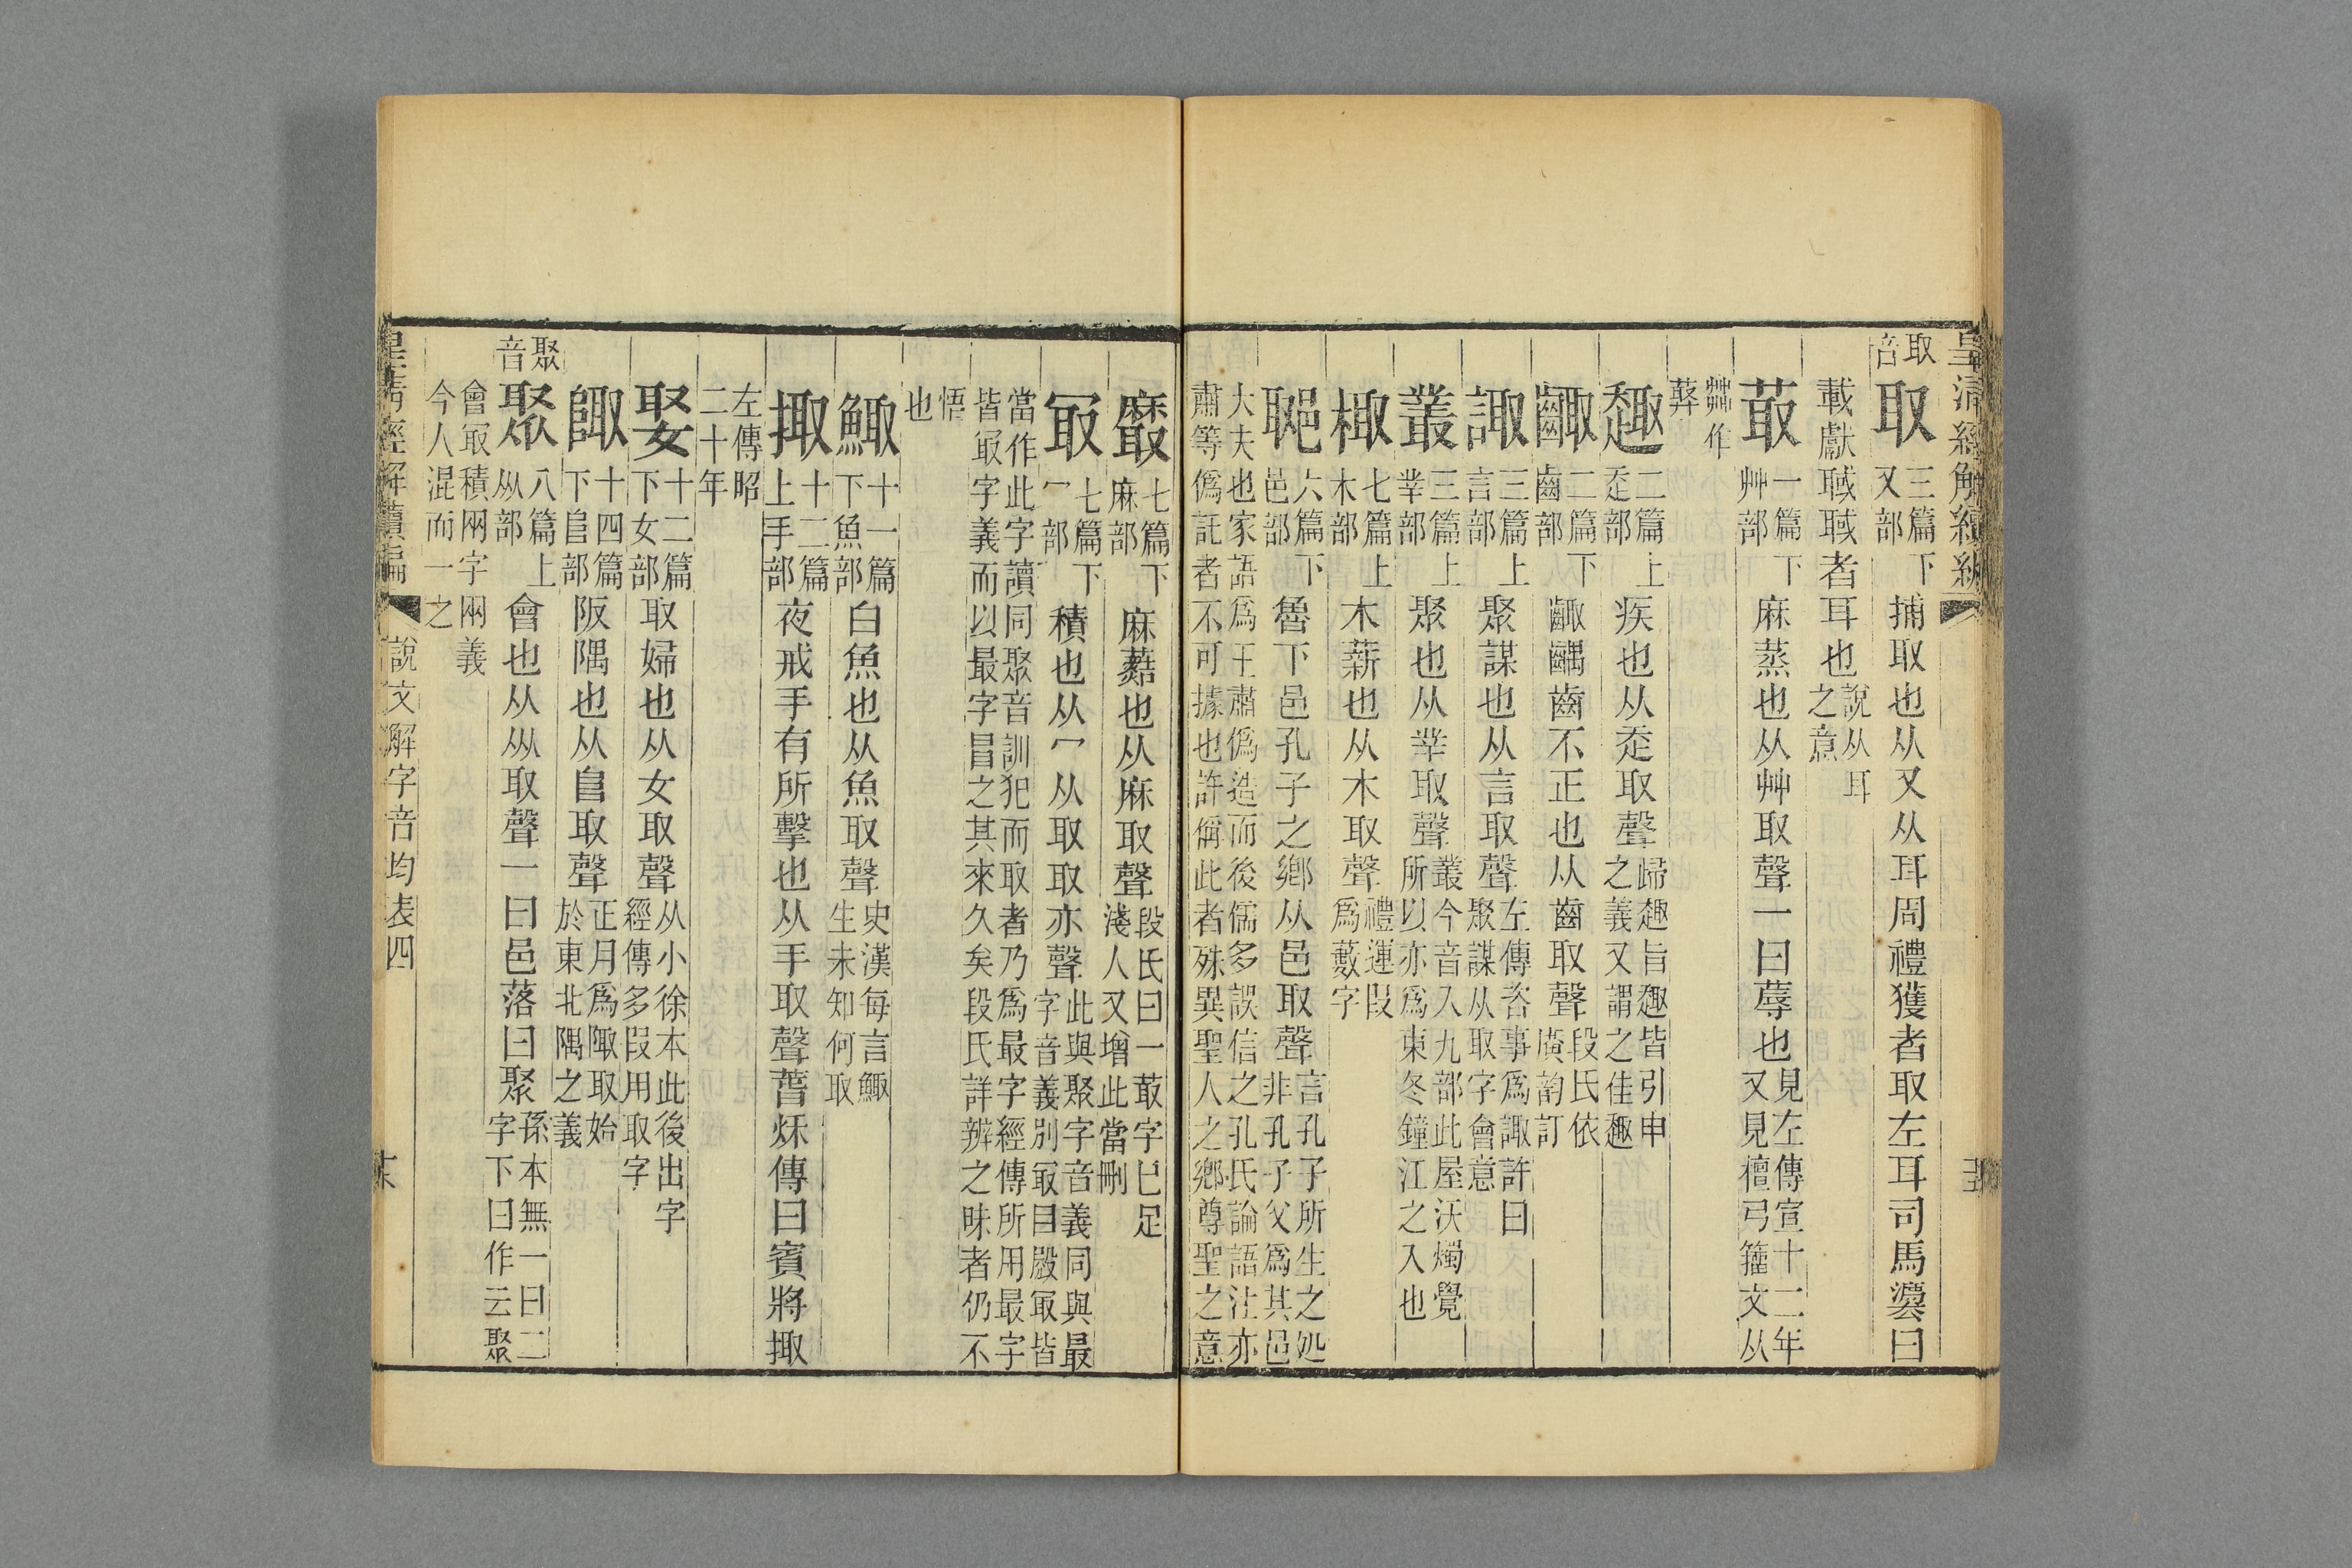 皇清經解續編
取音
取 三篇下又部 捕取也从又从耳周禮獲者取左耳司馬灋曰
載獻聝聝者耳也 說从耳之意
菆 一篇下艸部 麻蒸也从艸取聲一曰蓐也 見左傳宣十二年又見檀弓籒文从
茻作葬
趣 二篇上辵部 疾也从辵取聲 歸趣旨趣皆引申之義又謂之佳趣
齱 二篇下齒部 齱齵齒不正也从齒取聲 段氏依廣韵訂
諏 三篇上言部 聚謀也从言取聲 左傳咨事爲諏許曰聚謀从取字會意
叢 三篇上丵部 聚也从丵取聲 叢今音入九部此屋沃燭覺所以亦爲東冬鐘江之入也
棷 七篇上木部 木薪也从木取聲 禮運叚爲藪字
郰 六篇下邑部 魯下邑孔子之鄉从邑取聲 言孔子所生之処非孔子父爲其邑
大夫也家語爲王肅僞造而後儒多誤信之孔氏論語注亦
肅等僞託者不可據也許偁此者殊異聖人之鄉尊聖之意
黀 七篇下麻部 麻藍也从麻取聲 段氏曰一菆字已足淺人又增此當刪
冣 七篇下冖部 積也从冖从取取亦聲 此與聚字音義同與最字音義別冣目殿冣皆
當作此字讀同聚音訓犯而取者乃爲最字經傳所用最字
皆冣字義而以最字冒之其來久矣段氏詳辨之昧者仍不
悟也
鯫 十一篇下魚部 白魚也从魚取聲 史漢每言鯫生未知何取
掫 十二篇上手部 夜戒手有所擊也从手取聲春秌傳曰賓將掫
左傳昭二十年
娶 十二篇下女部 取婦也从女取聲 从小徐本此後出字經傳多叚用取字
陬 十四篇下𨸏部 阪隅也从𨸏取聲 正月爲陬取始於東北隅之義
聚音
聚 八篇上㐺部 會也从㐺取聲一曰邑落曰聚 孫本無一曰二字下曰作云聚
會冣積网字网義
今人混而一之
皇淸經解續編
說文解字音均表四